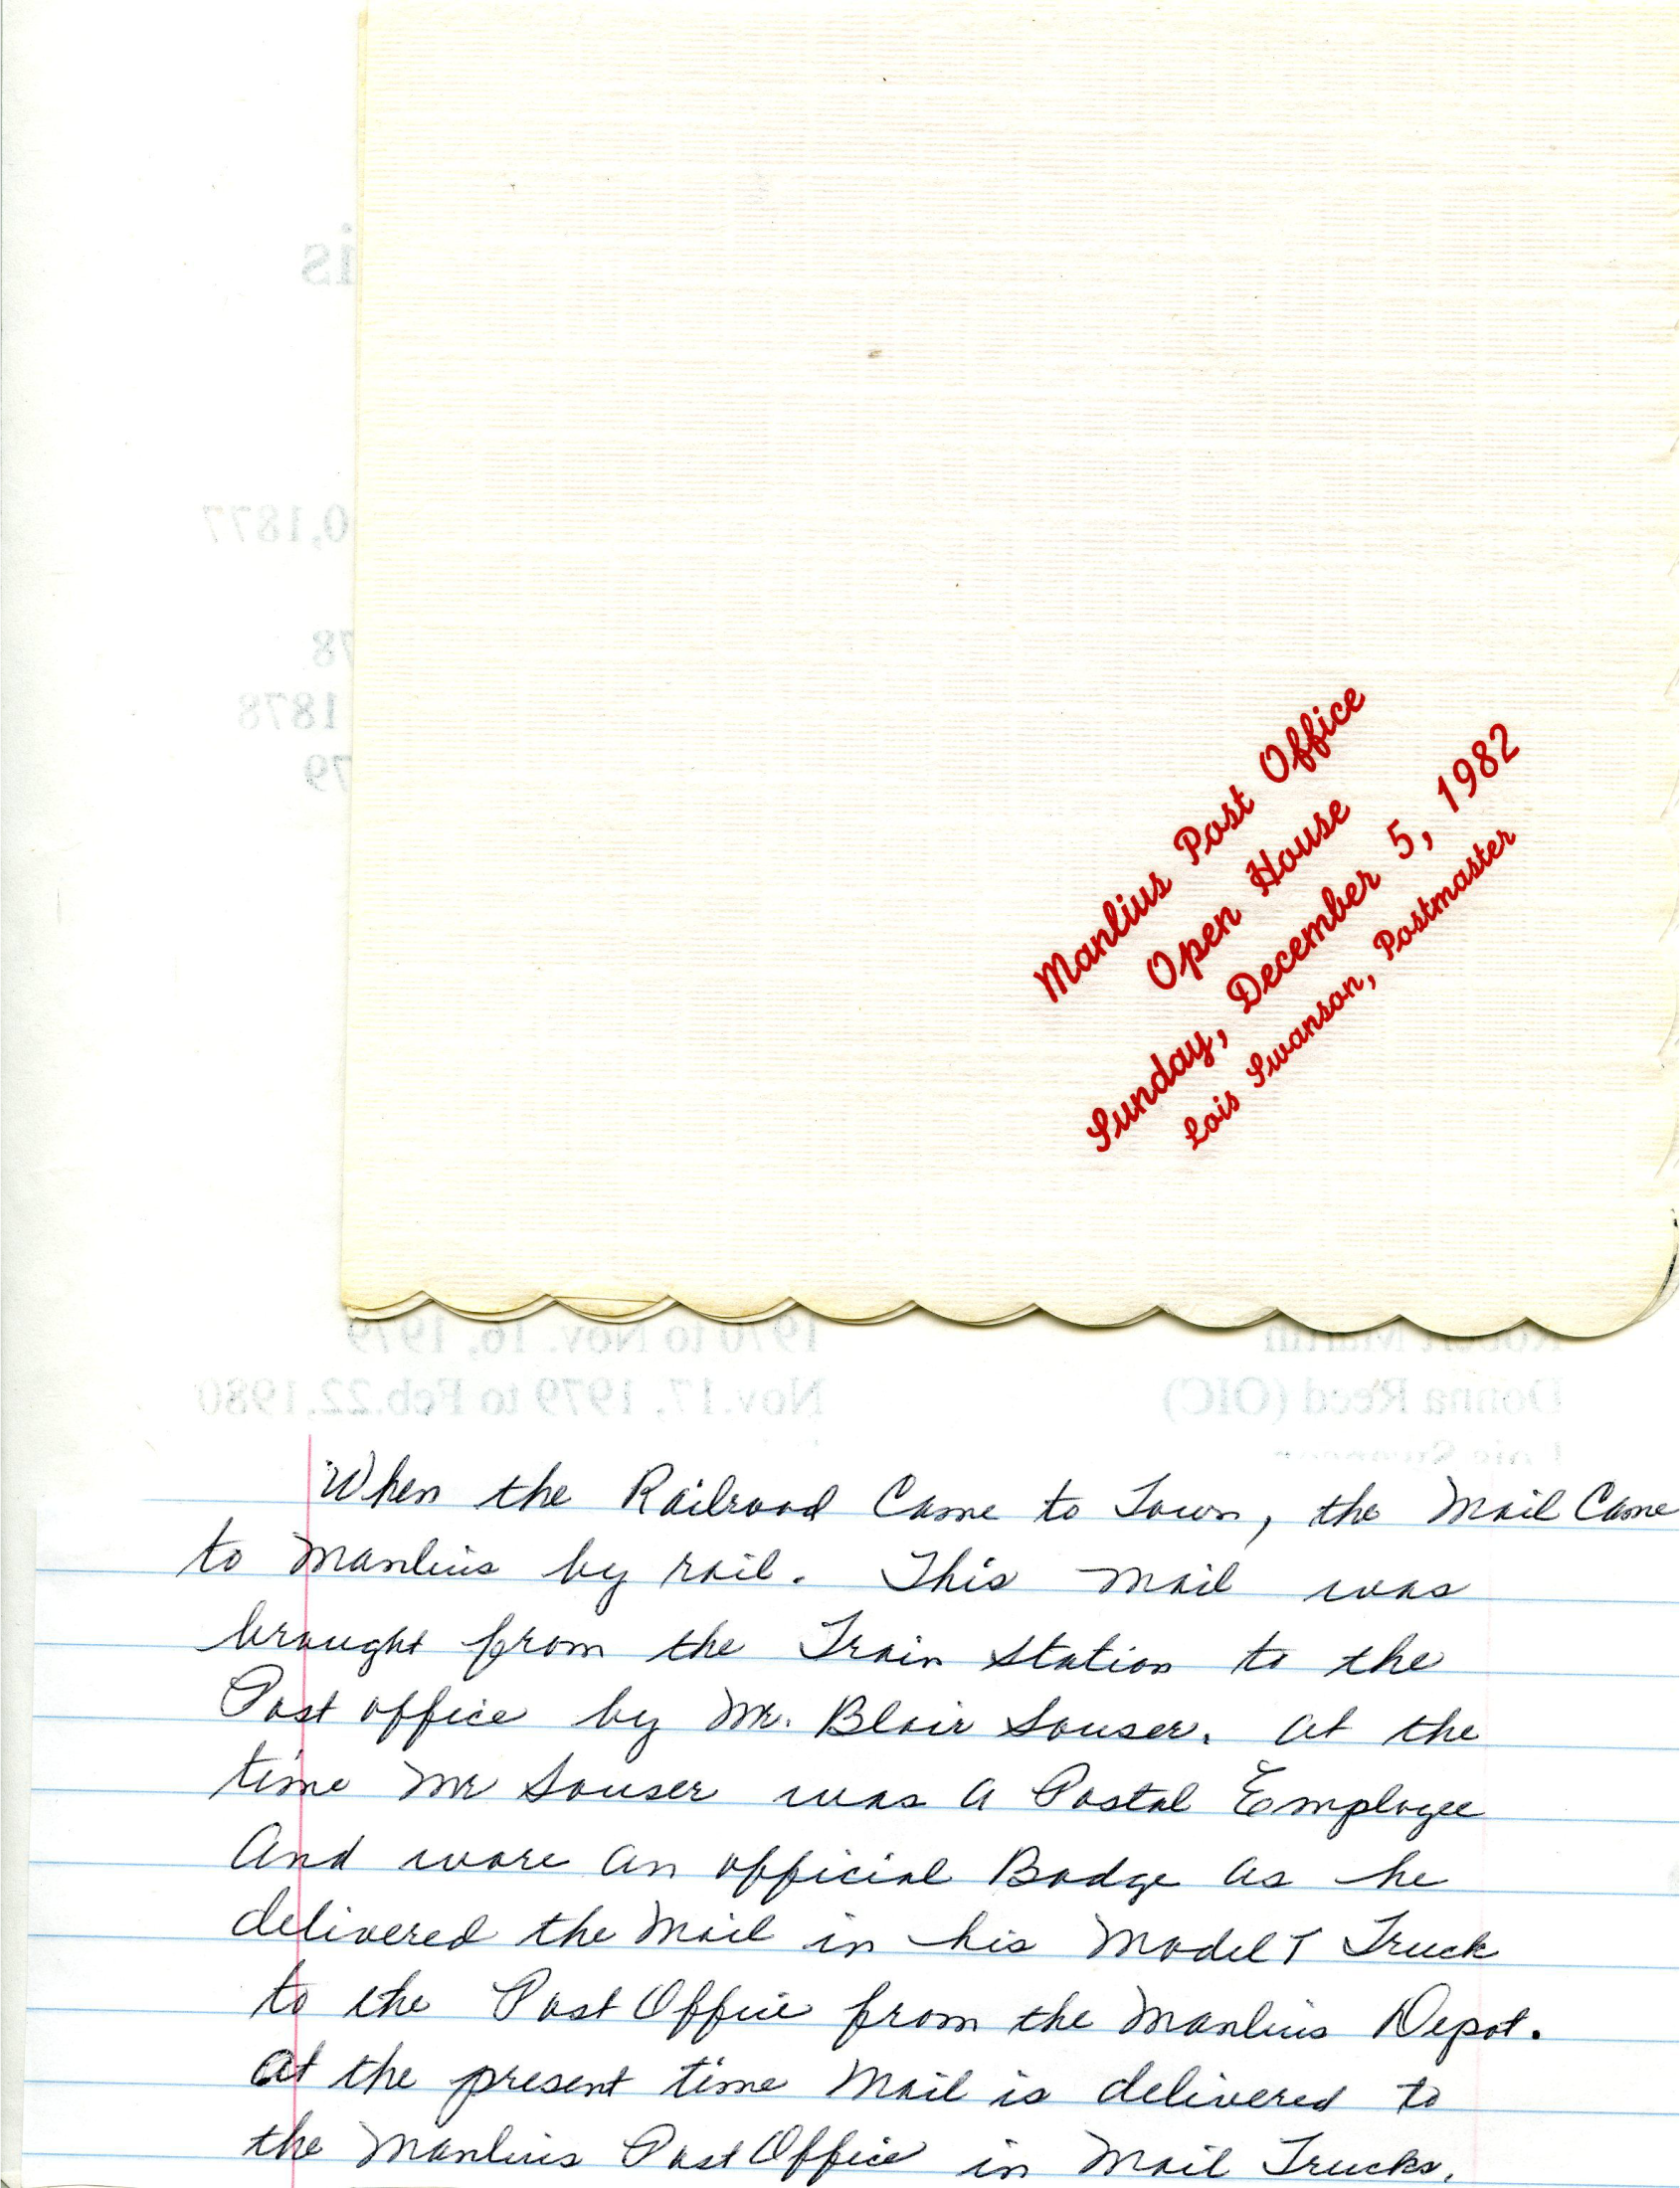 Manlius Post Office
Open House
Sunday, December 5, 1982
Lois Swanson, Postmaster
is
0,1877
78
1878
79
Robert Martin 1970 to Nov. 16, 1979
Donna Reed (OIC) Nov.17, 1979 to Feb.22,1980
When the Railroad Came to Town, the Mail Came
to Manlius by rail. This mail was
brought from the Train Station to the
Post office by Mr. Blair Souser. At the
time Mr Souser was a Postal Employee
And wore an official Badge as he
delivered the Mail in his Model T Truck
to the Post Office from the Manlius Depot.
At the present time Mail is delivered to
the Manlius Post Office in Mail Trucks.